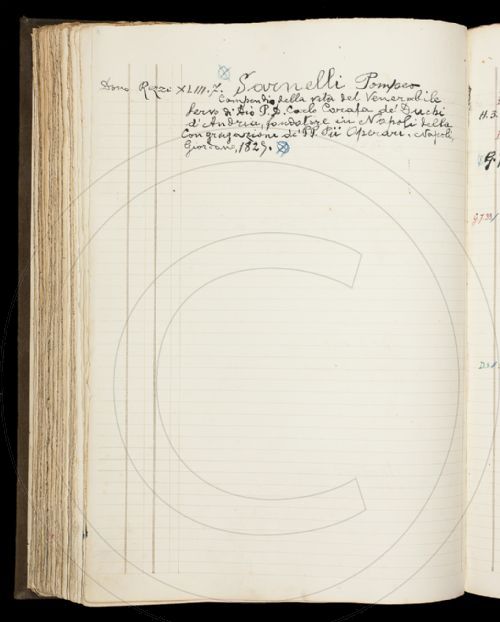 Dono Rizzi XLIII.7. Sarnelli Pompeo
Compendio della vita del Venerabile
Servo di Dio P. D. Carlo Carafa de' Duchi
d'Andria, fondatore in Napoli della
Congregazione de' PP. Pii Operari. Napoli,
Giordano, 1829.
H.3.
G.